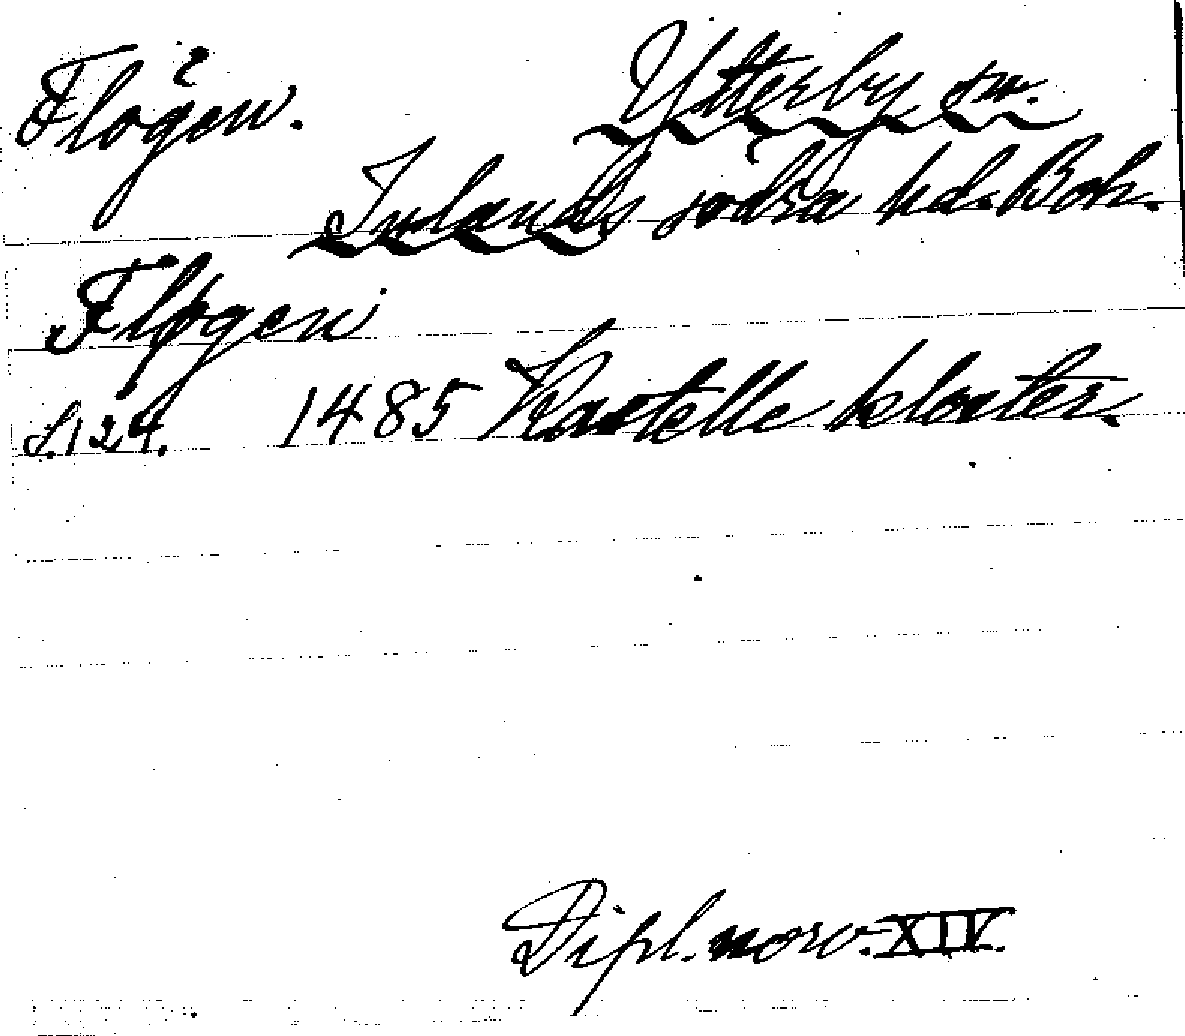 Flögen. Ytterby sn.
Inlands södra hd. Boh.
Fløgen
S. 124. 1485 Kastelle kloster.
Dipl. norv. XIV.